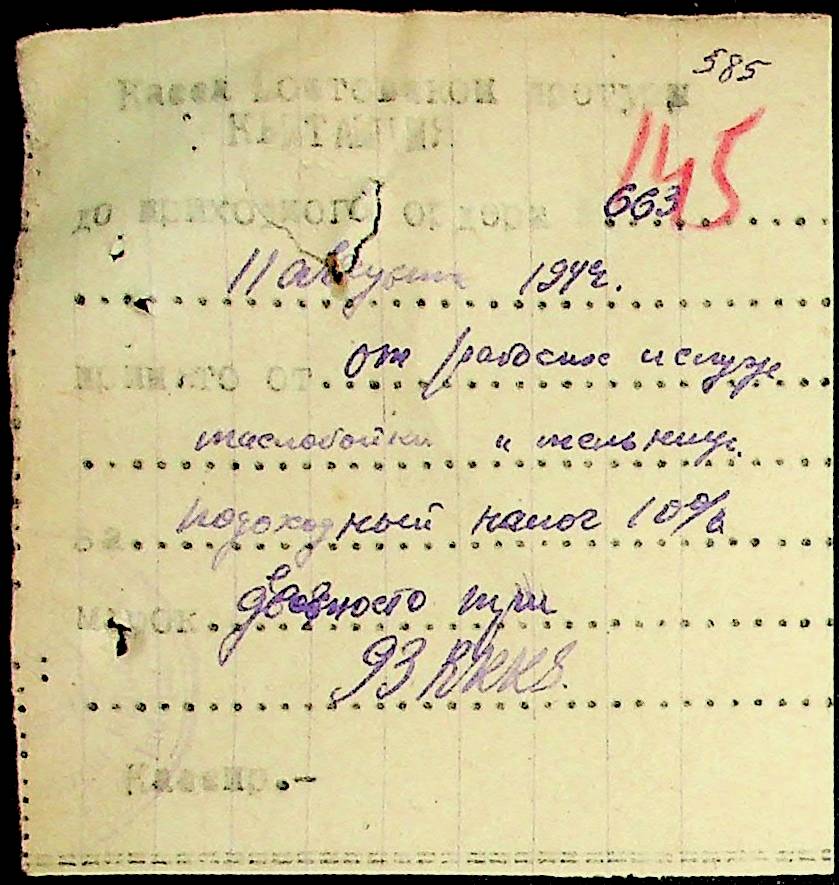 585
Касса Болтовской
КВИТАНЦИЯ
145
до приходного ордера 663
11 августа 1944.
принято от от рабочих и служ.
маслобойки и мельниц.
за подоходный налог 10%
марок девяносто три
93
Кассир.-